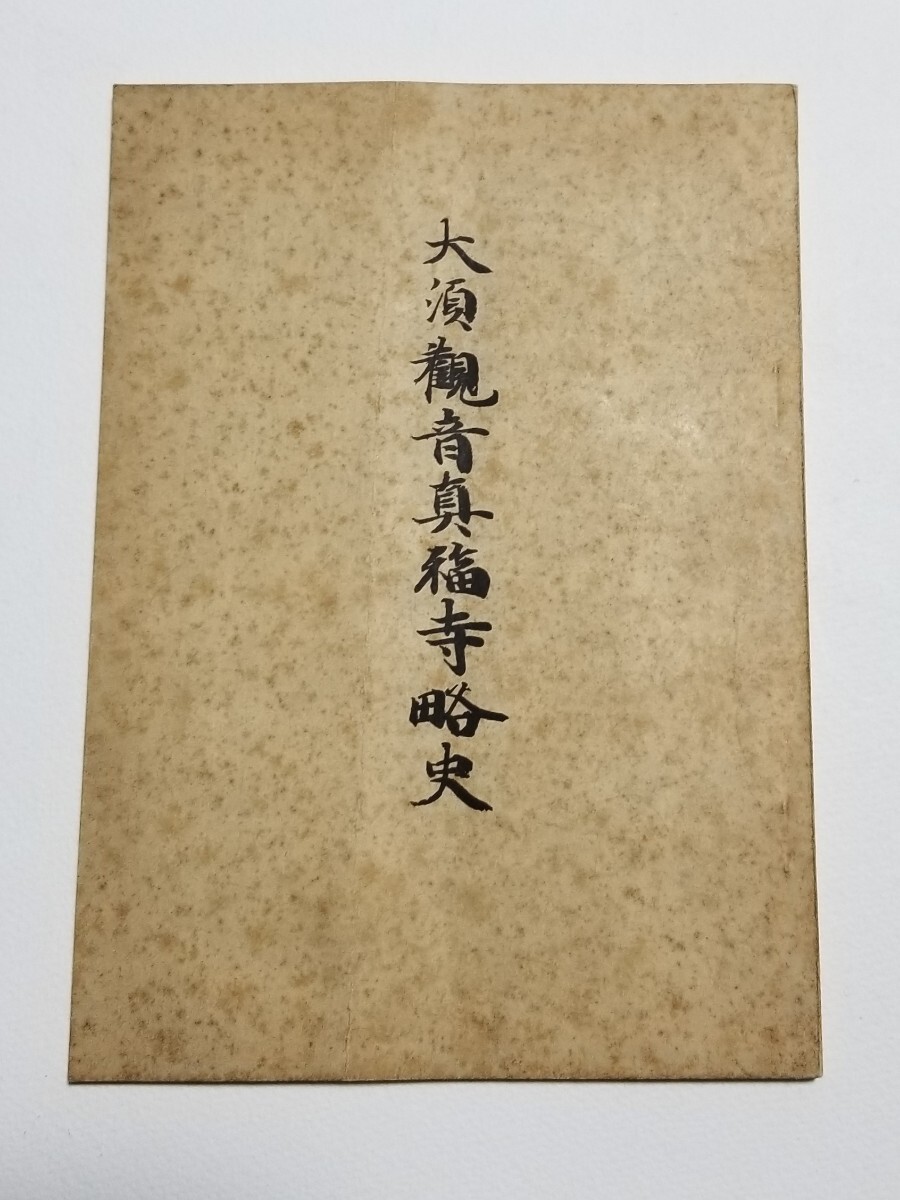 大須觀音真福寺略史